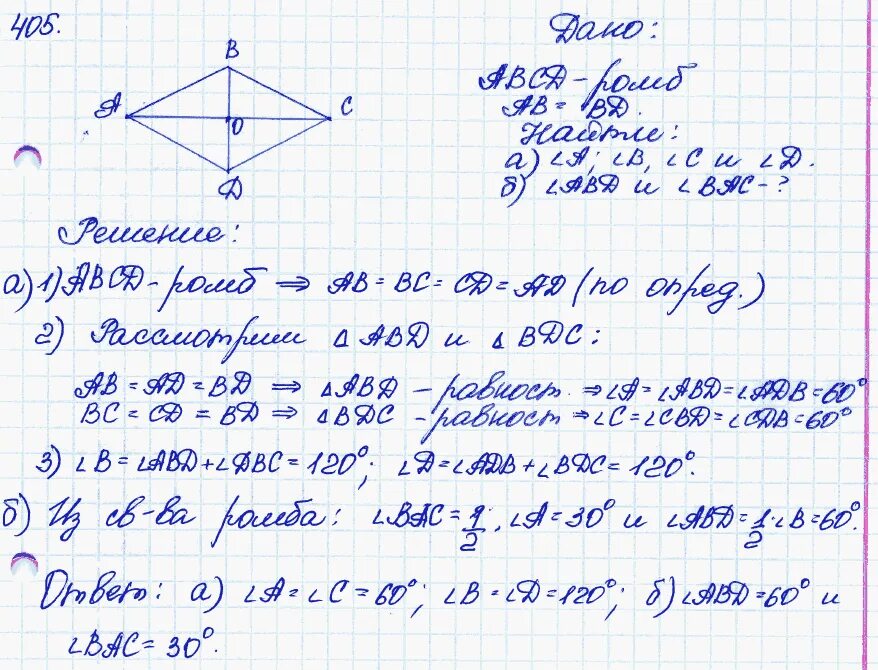 405.
Дано:
B
A
C
O
D
ABCD - ромб
AB = BD.
Найти:
а) ∠A; ∠B, ∠C и ∠D.
б) ∠ABD и ∠BAC - ?
Решение:
а) 1) ABCD - ромб ⇒ AB = BC = CD = AD (по опред.)
2) Рассмотрим △ABD и △BDC:
AB = AD = BD ⇒ △ABD - равност. ⇒ ∠A = ∠ABD = ∠ADB = 60°
BC = CD = BD ⇒ △BDC - равност ⇒ ∠C = ∠CBD = ∠CDB = 60°
3) ∠B = ∠ABD + ∠DBC = 120°; ∠D = ∠ADB + ∠BDC = 120°.
б) Из св-ва ромба: ∠BAC = 1/2 · ∠A = 30° и ∠ABD = 1/2 · ∠B = 60°.
Ответ: а) ∠A = ∠C = 60°; ∠B = ∠D = 120°; б) ∠ABD = 60° и
∠BAC = 30°.